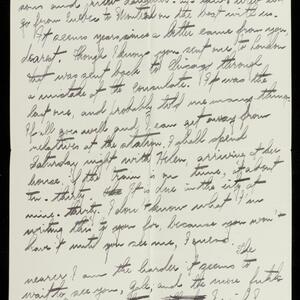 go from Quebec to Montreal on the boat with us.
It seems years since a letter came from you,
dearest. Though I know you sent one to London
that was sent back to Chicago through
a mistake at the Consulate. It was the
last one, and probably told me many things.
If all goes well and I can get away from
relatives at the station, I shall spend
Saturday night with Helen, arriving at her
house if the train is on time, at about
ten-thirty. It is due in the city at
nine-thirty. I don't know what I'm
writing this to you for, because you won't
have it until you see me, I guess.
The
nearer I am the harder it seems to
wait to see you, and the more